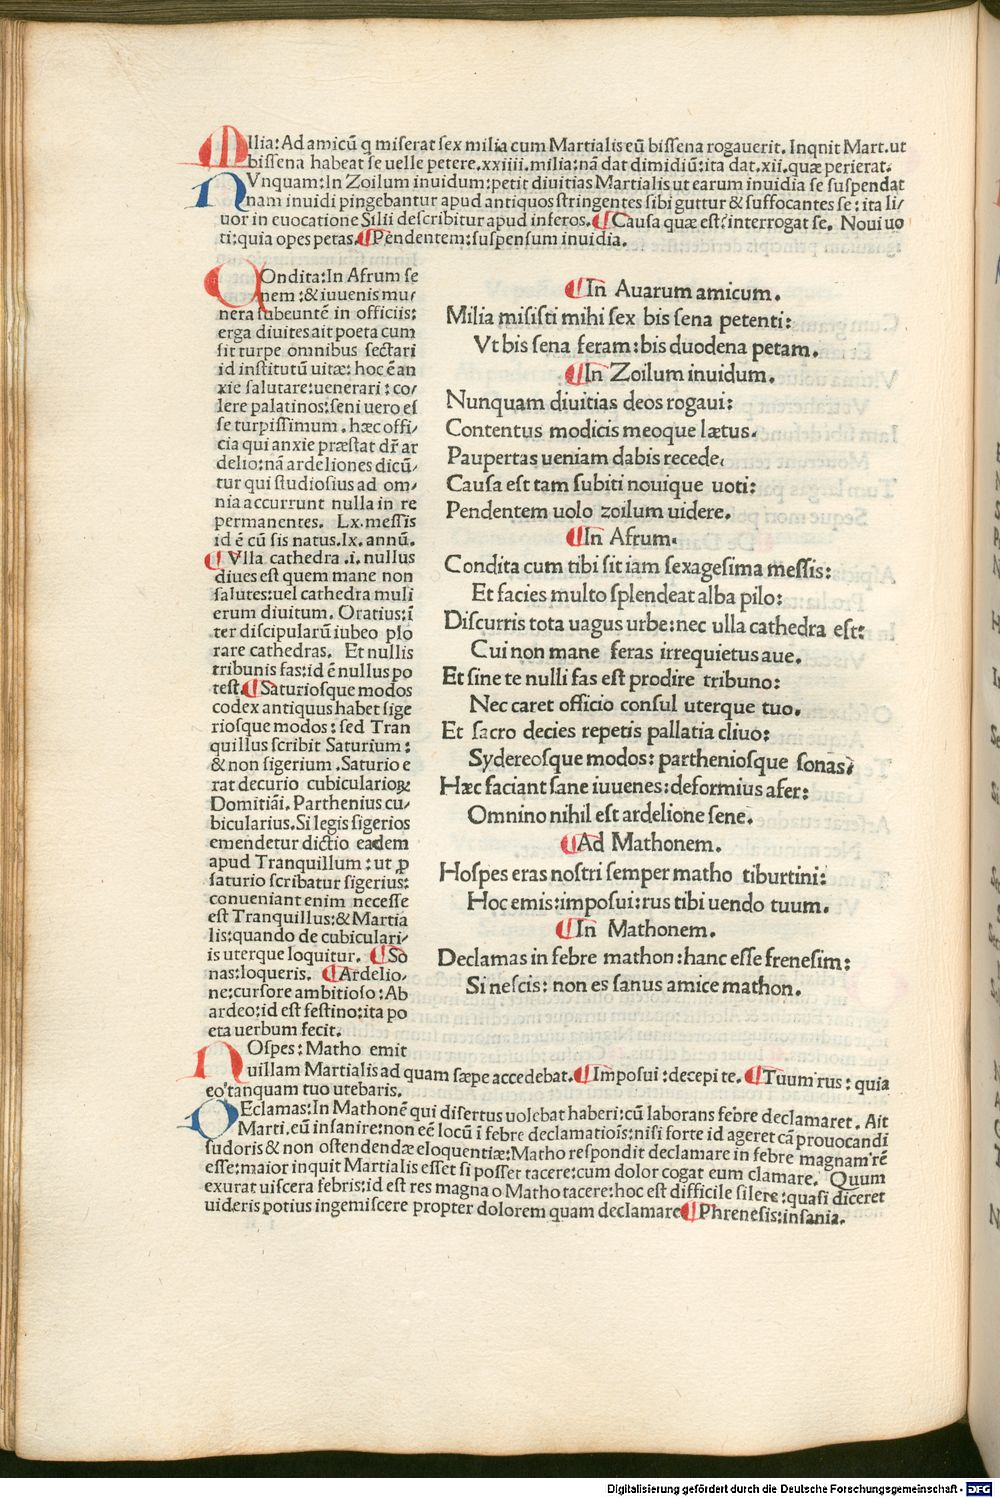 MIlia: Ad amicū q miserat sex milia cum Martialis eū bissena rogauerit. Inqnit Mart. ut
bissena habeat se uelle petere. xxiiii. milia: nā dat dimidiū: ita dat. xii. quæ perierat.
NVnquam: In Zoilum inuidum: petit diuitias Martialis ut earum inuidia se suspendat
nam inuidi pingebantur apud antiquos stringentes sibi guttur & suffocantes se: ita li/
uor in euocatione Silii describitur apud inferos. ¶ Causa quæ est? interrogat se. Noui uo
ti: quia opes petas. ¶ Pendentem: suspensum inuidia.
COndita: In Afrum se
nem: & iuuenis mu/
nera subeuntē in officiis:
erga diuites ait poeta cum
sit turpe omnibus sectari
id institutū uitæ: hoc ē an
xie salutare: uenerari: co/
lere palatinos: seni uero es
se turpissimum. hæc offi/
cia qui anxie præstat dr̄ ar
delio: nā ardeliones dicū/
tur qui studiosius ad om/
nia accurrunt nulla in re
permanentes. Lx. messis
id ē cū sis natus. lx. annū.
¶ Vlla cathedra .i. nullus
diues est quem mane non
salutes: uel cathedra muli
erum diuitum. Oratius: ī
ter discipularū iubeo plo
rare cathedras. Et nullis
tribunis fas: id ē nullus po
test. ¶ Saturiosque modos
codex antiquus habet sige
riosque modos: sed Tran
quillus scribit Saturium:
& non sigerium. Saturio e
rat decurio cubiculariorꝝ
Domitiāi. Parthenius cu/
bicularius. Si legis sigerios
emendetur dictio eadem
apud Tranquillum: ut ꝑ
saturio scribatur sigerius:
conueniant enim necesse
est Tranquillus: & Martia
lis: quando de cubiculari/
is uterque loquitur. ¶ So
nas: loqueris. ¶ Ardelio/
ne: cursore ambitioso: Ab
ardeo: id est festino: ita po
eta uerbum fecit.
¶ In Auarum amicum.
Milia misisti mihi sex bis sena petenti:
Vt bis sena feram: bis duodena petam.
¶ In Zoilum inuidum.
Nunquam diuitias deos rogaui:
Contentus modicis meoque lætus.
Paupertas ueniam dabis recede.
Causa est tam subiti nouique uoti:
Pendentem uolo zoilum uidere.
¶ In Afrum.
Condita cum tibi sit iam sexagesima messis:
Et facies multo splendeat alba pilo:
Discurris tota uagus urbe: nec ulla cathedra est:
Cui non mane feras irrequietus aue.
Et sine te nulli fas est prodire tribuno:
Nec caret officio consul uterque tuo.
Et sacro decies repetis pallatia cliuo:
Sydereosque modos: partheniosque sonas.
Hæc faciant sane iuuenes: deformius afer:
Omnino nihil est ardelione sene.
¶ Ad Mathonem.
Hospes eras nostri semper matho tiburtini:
Hoc emis: imposui: rus tibi uendo tuum.
¶ In Mathonem.
Declamas in febre mathon: hanc esse frenesim:
Si nescis: non es sanus amice mathon.
HOspes: Matho emit
uillam Martialis ad quam sæpe accedebat. ¶ Imposui: decepi te. ¶ Tuum rus: quia
eo tanquam tuo utebaris.
DEclamas: In Mathonē qui disertus uolebat haberi: cū laborans febre declamaret. Ait
Marti. eū insanire: non eē locū ī febre declamatiōis: nisi forte id ageret cā prouocandi
sudoris & non ostendendæ eloquentiæ: Matho respondit declamare in febre magnam rē
esse: maior inquit Martialis esset si posset tacere: cum dolor cogat eum clamare. Quum
exurat uiscera febris: id est res magna o Matho tacere: hoc est difficile silere: quasi diceret
uideris potius ingemiscere propter dolorem quam declamare ¶ Phrenesis: insania.
Digitalisierung gefördert durch die Deutsche Forschungsgemeinschaft - DFG